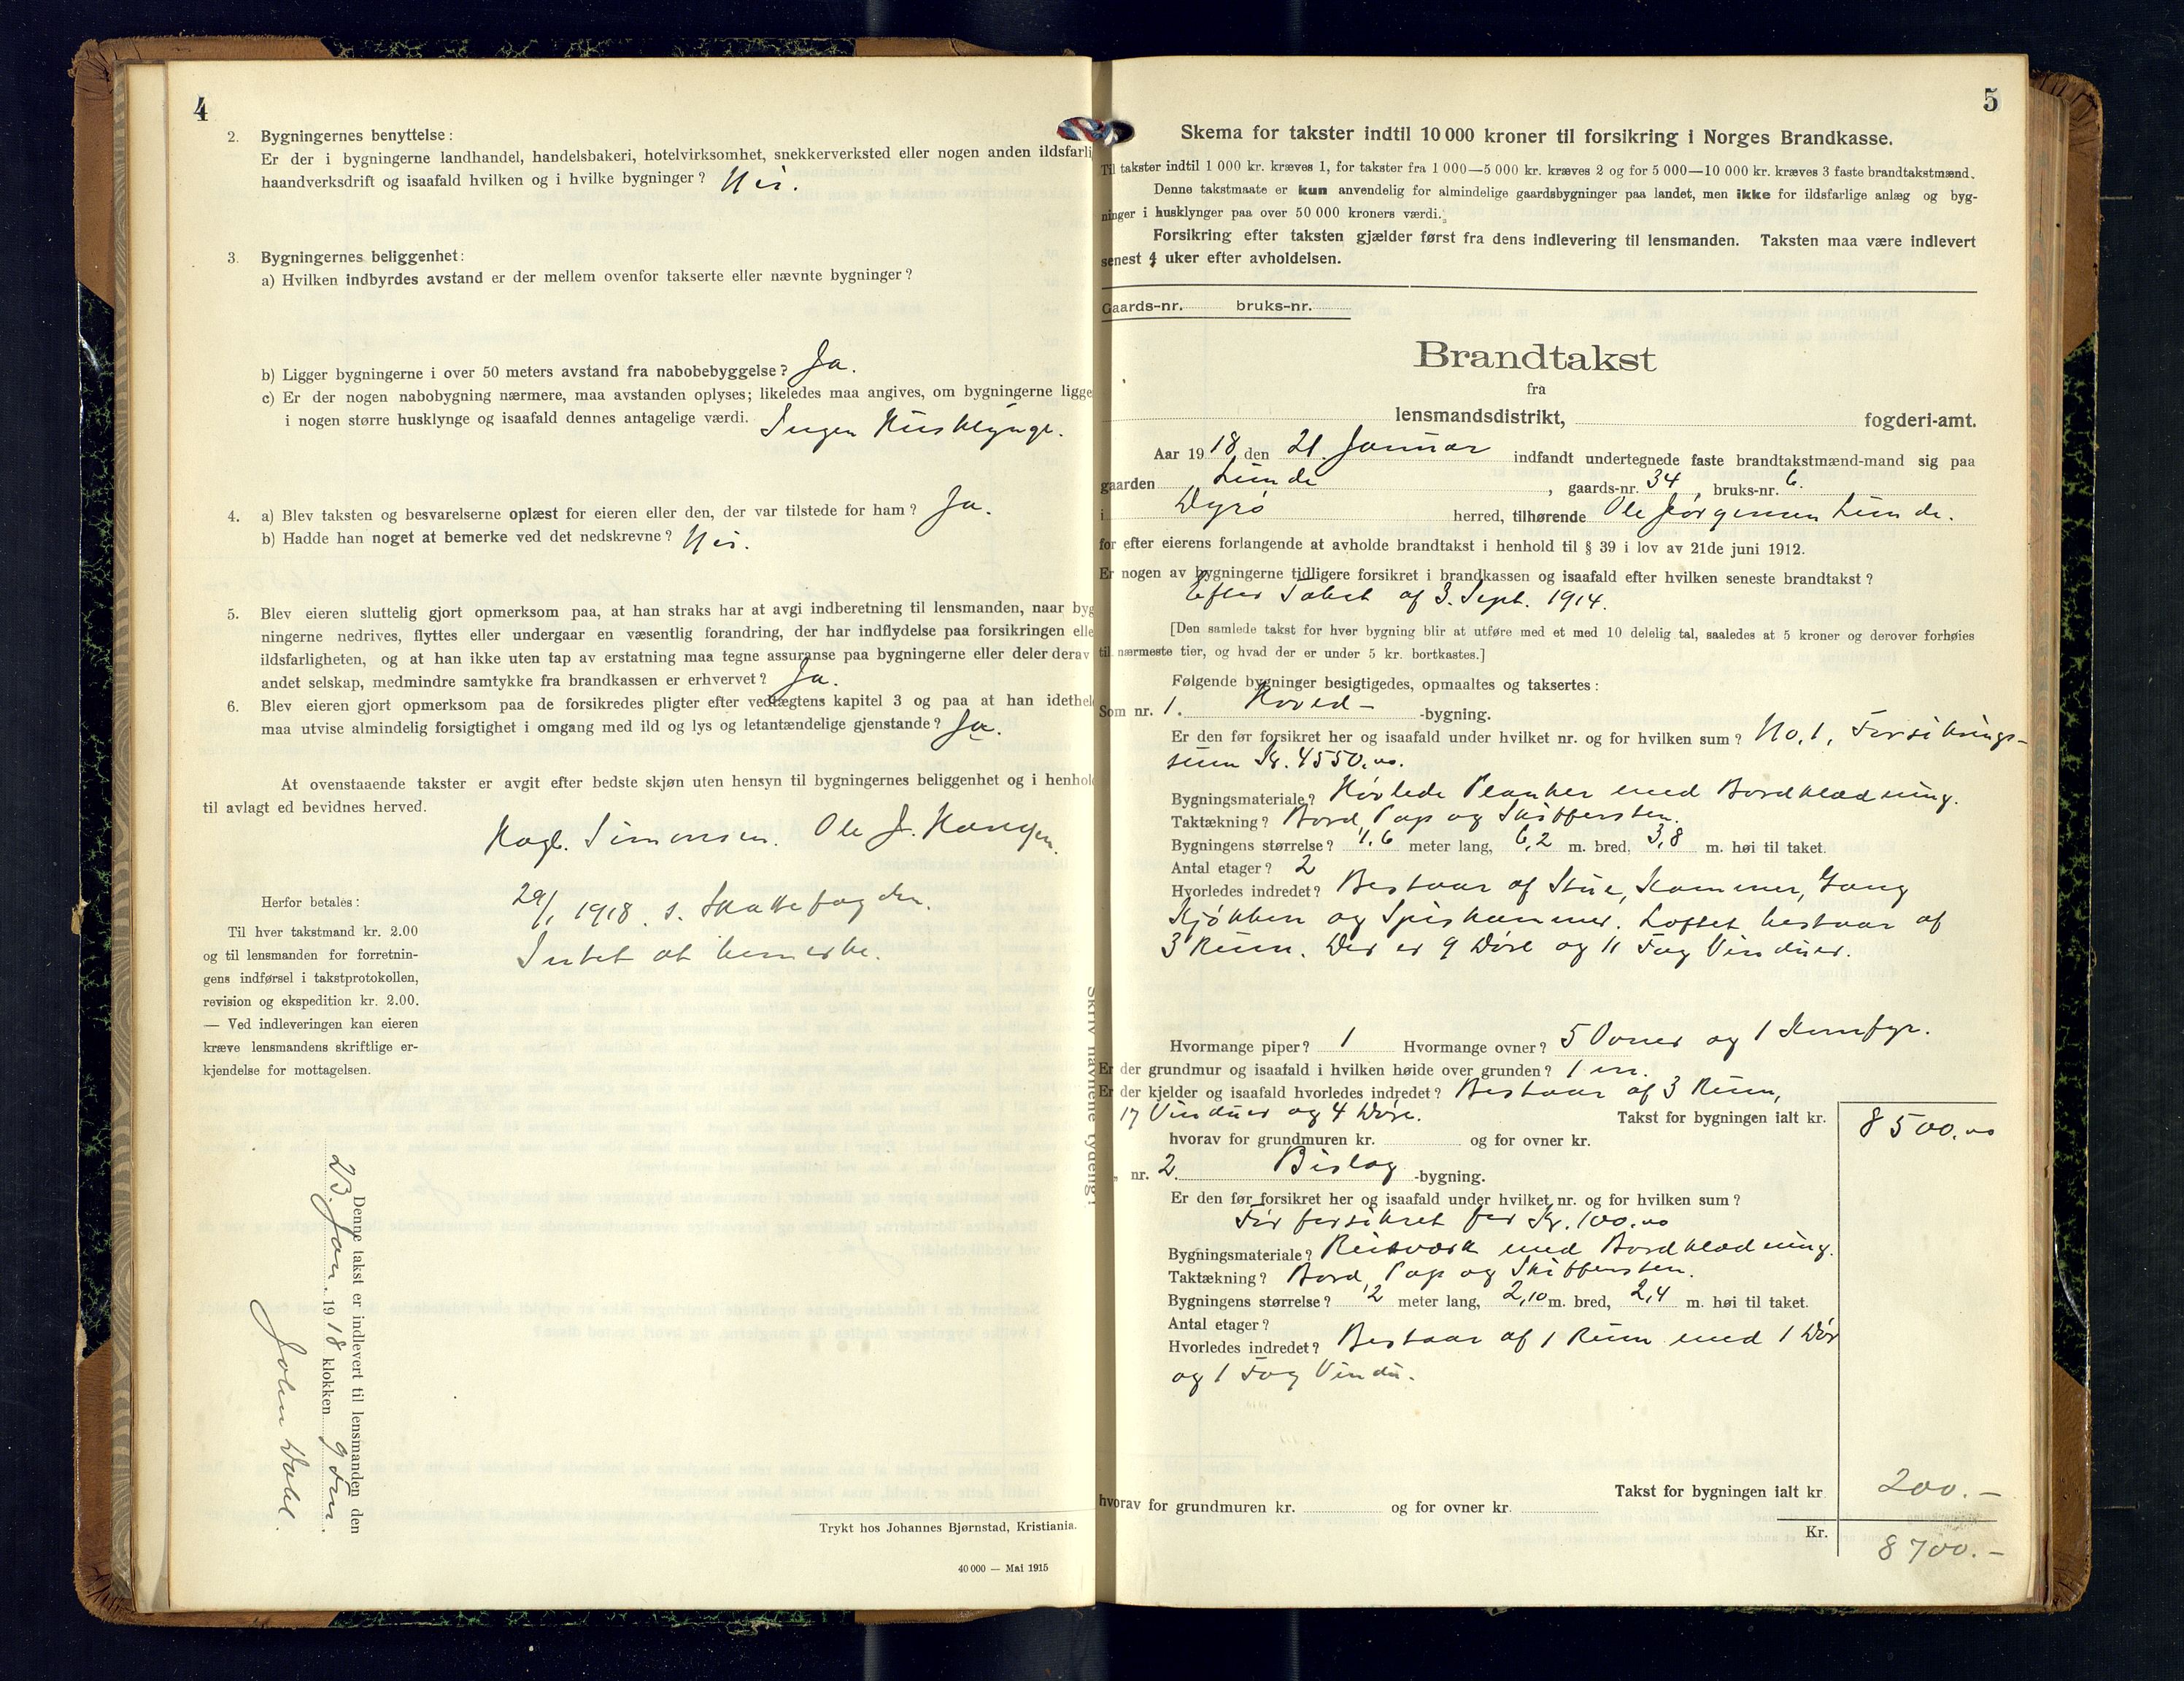 4
2. Bygningernes benyttelse:
Er der i bygningerne landhandel, handelsbakeri, hotelvirksomhet, snekkerverksted eller nogen anden ildsfarli
haandverksdrift og isaafald hvilken og i hvilke bygninger? Nei.
3. Bygningernes beliggenhet:
a) Hvilken indbyrdes avstand er der mellem ovenfor takserte eller nævnte bygninger?
b) Ligger bygningerne i over 50 meters avstand fra nabobebyggelse? Ja.
c) Er der nogen nabobygning nærmere, maa avstanden oplyses; likeledes maa angives, om bygningerne ligge
i nogen større husklynge og isaafald dennes antagelige værdi. Ingen Husklynge.
4. a) Blev taksten og besvarelserne oplæst for eieren eller den, der var tilstede for ham? Ja.
b) Hadde han noget at bemerke ved det nedskrevne? Nei.
5. Blev eieren sluttelig gjort opmerksom paa, at han straks har at avgi indberetning til lensmanden, naar byg
ningerne nedrives, flyttes eller undergaar en væsentlig forandring, der har indflydelse paa forsikringen elle
ildsfarligheten, og at han ikke uten tap av erstatning maa tegne assuranse paa bygningerne eller deler derav
andet selskap, medmindre samtykke fra brandkassen er erhvervet? Ja.
6. Blev eieren gjort opmerksom paa de forsikredes pligter efter vedtægtens kapitel 3 og paa at han idethel
maa utvise almindelig forsigtighet i omgang med ild og lys og letantændelige gjenstande? Ja.
At ovenstaaende takster er avgit efter bedste skjøn uten hensyn til bygningernes beliggenhet og i henhol
til avlagt ed bevidnes herved.
Hagb. Simonsen. Ole J.
Herfor betales:
29/1 1918. s. Skattefogden.
Intet at bemerke.
Til hver takstmand kr. 2.00
og til lensmanden for forretnin-
gens indførsel i takstprotokollen,
revision og ekspedition kr. 2.00.
— Ved indleveringen kan eieren
kræve lensmandens skriftlige er-
kjendelse for mottagelsen.
Denne takst er indlevert til lensmanden den
23. Jan. 1918 klokken 9 Fm.
John Dahl.
Trykt hos Johannes Bjørnstad, Kristiania.
40 000 — Mai 1915
Skriv navnene tydelig!
5
Skema for takster indtil 10 000 kroner til forsikring i Norges Brandkasse.
Til takster indtil 1 000 kr. kræves 1, for takster fra 1 000—5 000 kr. kræves 2 og for 5 000—10 000 kr. kræves 3 faste brandtakstmænd.
Denne takstmaate er kun anvendelig for almindelige gaardsbygninger paa landet, men ikke for ildsfarlige anlæg og byg-
ninger i husklynger paa over 50 000 kroners værdi.
Forsikring efter taksten gjælder først fra dens indlevering til lensmanden. Taksten maa være indlevert
senest 4 uker efter avholdelsen.
Gaards-nr. bruks-nr.
Brandtakst
fra
lensmandsdistrikt, fogderi-amt.
Aar 1918, den 21. Januar indfandt undertegnede faste brandtakstmænd-mand sig paa
gaarden Lunde, gaards-nr. 34, bruks-nr. 6.
i Dyrø herred, tilhørende Ole Jørgensen Lunde.
for efter eierens forlangende at avholde brandtakst i henhold til § 39 i lov av 21de juni 1912.
Er nogen av bygningerne tidligere forsikret i brandkassen og isaafald efter hvilken seneste brandtakst?
Efter Takst af 3. Sept. 1914.
[Den samlede takst for hver bygning blir at utføre med et med 10 delelig tal, saaledes at 5 kroner og derover forhøies
til nærmeste tier, og hvad der er under 5 kr. bortkastes.]
Følgende bygninger besigtigedes, opmaaltes og taksertes:
Som nr. 1. Hoved- -bygning.
Er den før forsikret her og isaafald under hvilket nr. og for hvilken sum? No. 1, Forsikrings-
sum Kr. 4550.00.
Bygningsmateriale? Høvlede Planker med Bordklædning.
Taktækning? Bord, Pap og Skiffersten.
Bygningens størrelse? meter lang, 6,2 m. bred, 3,8 m. høi til taket.
Antal etager? 2
Hvorledes indredet? Bestaar af Stue, Kammer, Gang
Kjøkken og Spiskammer. Loftet bestaar af
3 Rum. Der er 9 Døre og 11 Fag Vinduer.
Hvormange piper? 1 Hvormange ovner? 5 Ovner og 1 Komfyr.
Er der grundmur og isaafald i hvilken høide over grunden? 1 m.
Er der kjelder og isaafald hvorledes indredet? Bestaar af 3 Rum,
17 Vinduer og 4 Døre. Takst for bygningen ialt kr. 8500.00
hvorav for grundmuren kr. og for ovner kr.
„ nr. 2. Bislag -bygning.
Er den før forsikret her og isaafald under hvilket nr. og for hvilken sum?
Før forsikret for Kr. 100.00
Bygningsmateriale? Reisværk med Bordklædning.
Taktækning? Bord, Pap og Skiffersten.
Bygningens størrelse? 2 meter lang, 2,10 m. bred, 2,4 m. høi til taket.
Antal etager?
Hvorledes indredet? Bestaar af 1 Rum med 1 Dør
og 1 Fag Vindu.
Takst for bygningen ialt kr 200.—
hvorav for grundmuren kr. og for ovner kr.
Kr. 8700.—